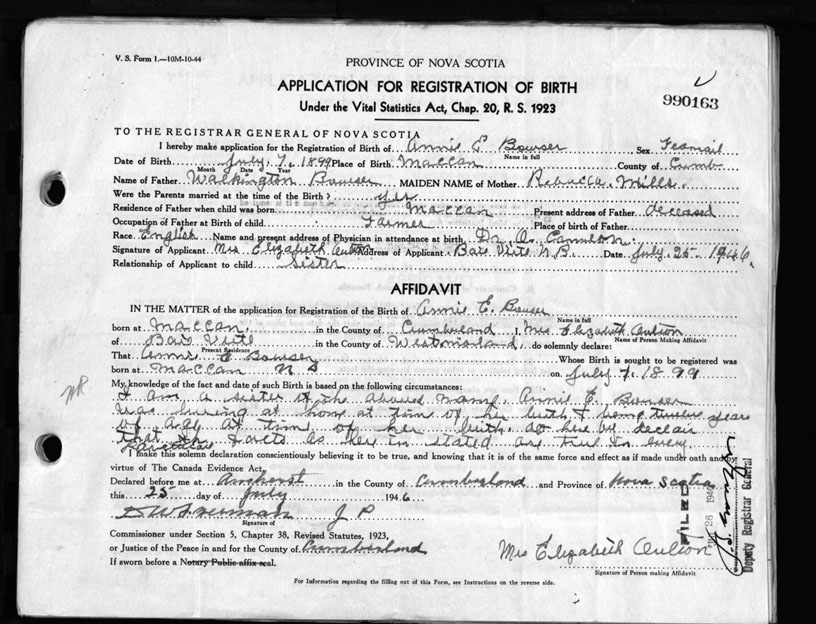 V. S. Form 1.—10M-10-44
PROVINCE OF NOVA SCOTIA
APPLICATION FOR REGISTRATION OF BIRTH
Under the Vital Statistics Act, Chap. 20, R. S. 1923
990163
TO THE REGISTRAR GENERAL OF NOVA SCOTIA
I hereby make application for the Registration of Birth of Annie E Bowser Sex Feamail
Name in full
Date of Birth July 7. 1899 Place of Birth Maccan County of Cumb
Month Date Year
Name of Father Walkington Bowser MAIDEN NAME of Mother Rebecca Mills.
Were the Parents married at the time of the Birth? yes
Residence of Father when child was born Maccan Present address of Father deceased
Occupation of Father at Birth of child Farmer Place of birth of Father
Race English Name and present address of Physician in attendance at birth Dr. A.
Signature of Applicant Mrs Elizabeth Oulton Address of Applicant Baie Verte N.B. Date July. 25 1946.
Relationship of Applicant to child Sister
AFFIDAVIT
IN THE MATTER of the application for Registration of the Birth of Annie E. Bowser
Name in full
born at Maccan. in the County of Cumberland I, Mrs Elizabeth Oulton
Name of Person Making Affidavit
of Baie Verte in the County of Westmorland, do solemnly declare:
Present Residence
That Annie E Bowser Whose Birth is sought to be registered was
born at Maccan N S on July 7. 1899
My knowledge of the fact and date of such Birth is based on the following circumstances:
I am a sister of the above Name. Annie E. Bowser
Was living at home at time of her birth & being twelve years
of age at time of her birth. do here by declair
that the facts as here in stated are true in every
I make this solemn declaration conscientiously believing it to be true, and knowing that it is of the same force and effect as if made under oath and by
virtue of The Canada Evidence Act.
Declared before me at Amherst in the County of Cumberland and Province of Nova Scotia
this 25 day of July 1946
J P
Signature of
Commissioner under Section 5, Chapter 38, Revised Statutes, 1923,
or Justice of the Peace in and for the County of Cumberland
Mrs Elizabeth Oulton
Signature of Person making Affidavit
If sworn before a Notary Public affix seal.
For Information regarding the filling out of this Form, see Instructions on the reverse side.
FILED
26 1946
Deputy Registrar General